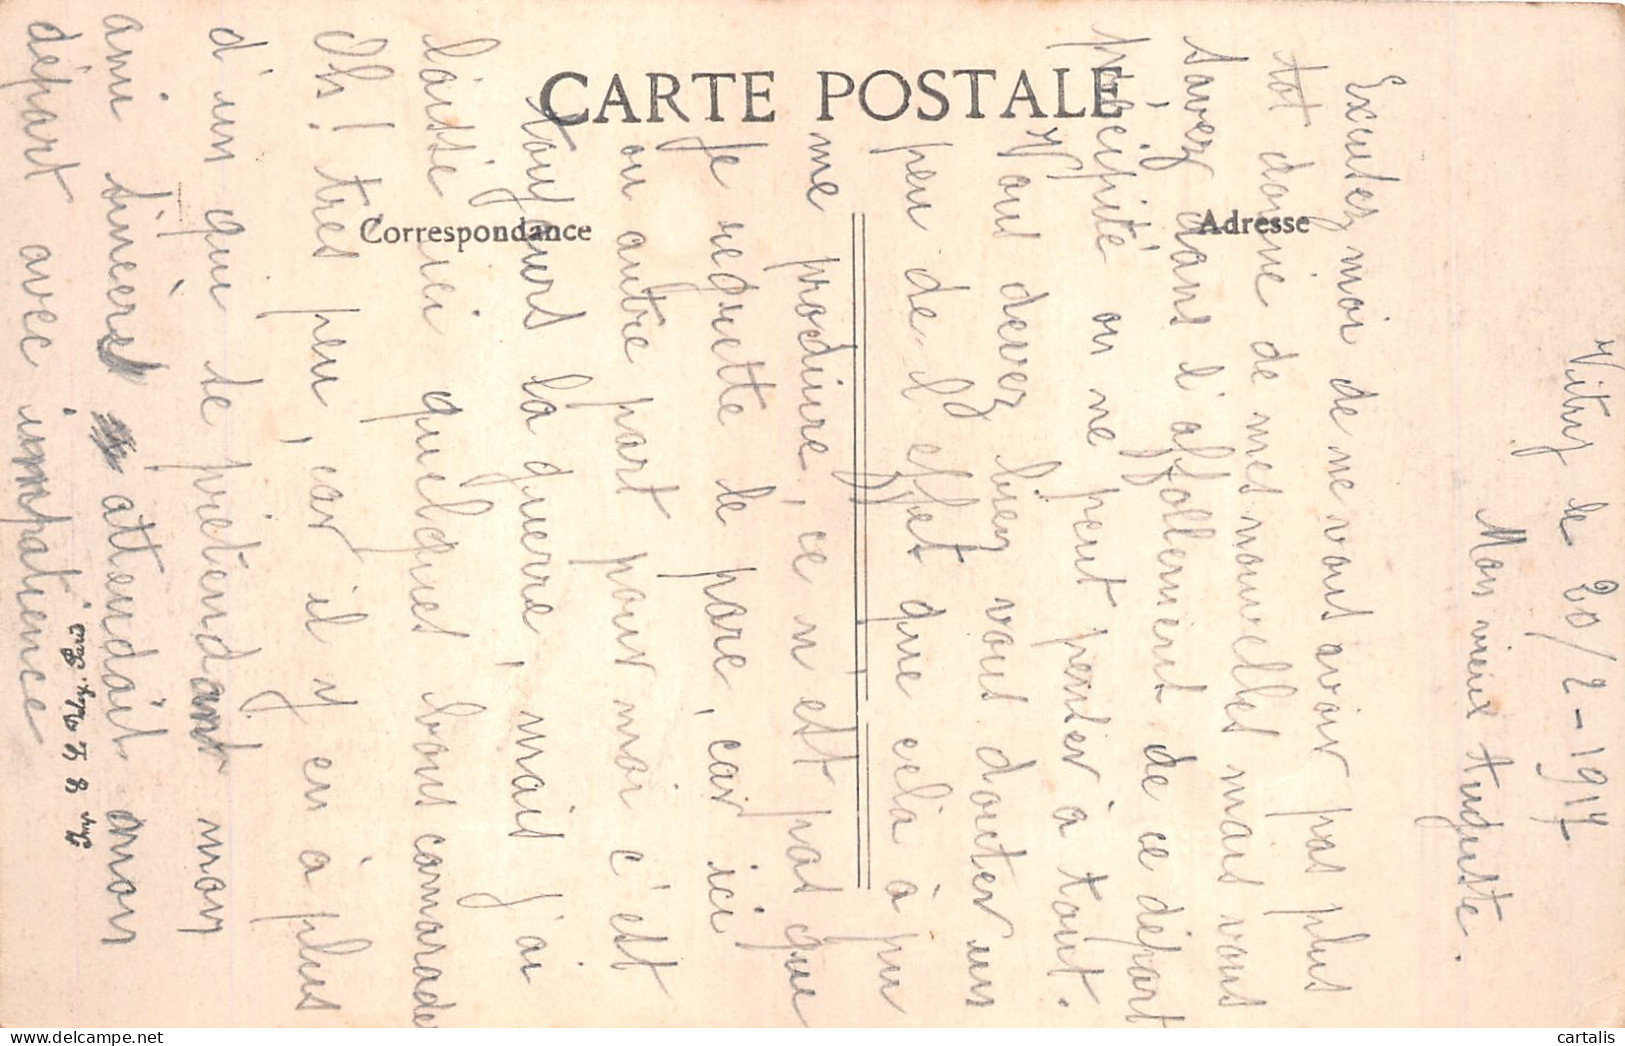 CARTE POSTALE
Correspondance
Adresse
Vitry le 20/2-1917
Mon vieux Auguste.
Excusez moi de ne vous avoir pas plus
tôt donné de mes nouvelles mais vous
savez dans l'affollement de ce départ
précipité on ne peut penser à tout.
Vous devez bien vous douter un
peu de l'effet que cela à pu
me produire, ce n'est pas que
Je regrette le parc, car ici
ou autre part pour moi c'est
toujours la guerre, mais j'ai
laissé ici quelques bons camarades
Oh! très peu, car il y en à plus
d'un qui se prétendant mon
ami sincère attendait mon
départ avec impatience
cartalis